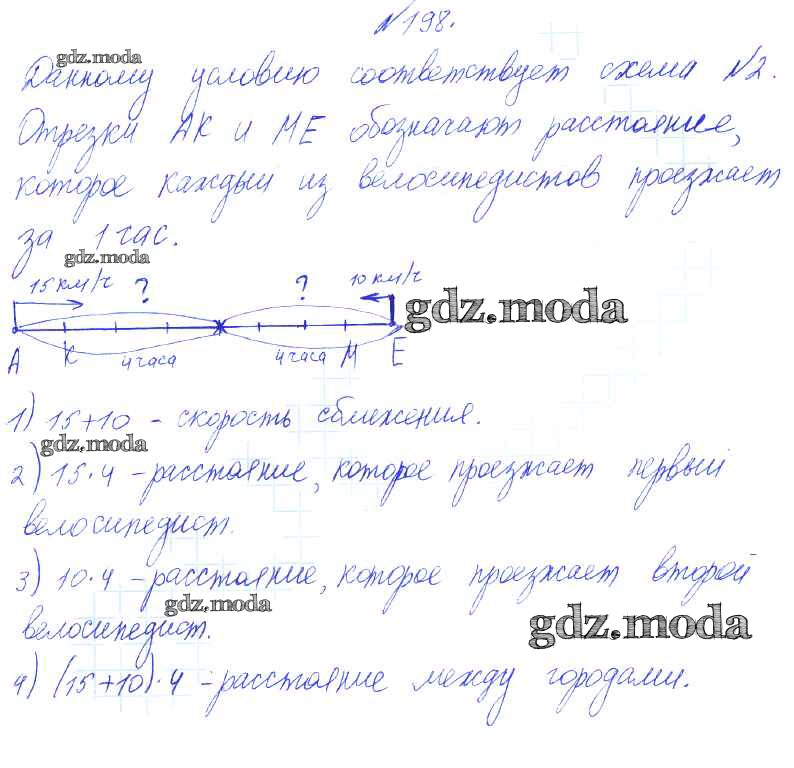 №198.
gdz.moda
Данному условию соответствует схема №2.
Отрезки АК и МЕ обозначают расстояние,
которое каждый из велосипедистов проезжает
за 1 час.
gdz.moda
15 км/ч ? ? 10 км/ч
gdz.moda
А К 4 часа 4 часа М Е
1) 15+10 - скорость сближения.
gdz.moda
2) 15·4 - расстояние, которое проезжает первый
велосипедист.
3) 10·4 - расстояние, которое проезжает второй
gdz.moda
велосипедист.
gdz.moda
4) (15+10)·4 - расстояние между городами.